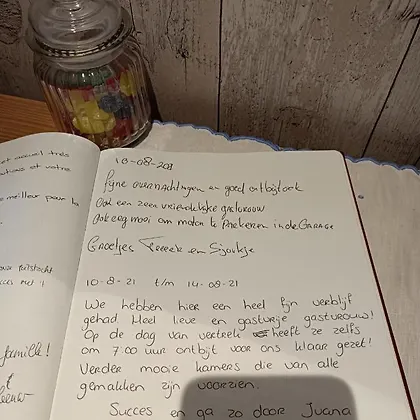 et accueil très
et votre
meilleur pour la
famille!
10-08-2021
Fijne overnachtingen en goed ontbijt ook
Ook een zeer vriendelijke gastvrouw
Ook erg mooi om motor te Parkeren in de Garage
Groetjes en Sjoukje
10-8-21 t/m 14-08-21
We hebben hier een heel fijn verblijf
gehad. Heel lieve en gastvrije gastvrouw!
Op de dag van vertrek heeft ze zelfs
om 7:00 uur ontbijt voor ons klaar gezet!
Verder mooie kamers die van alle
gemakken zijn voorzien.
Succes en ga zo door Juana